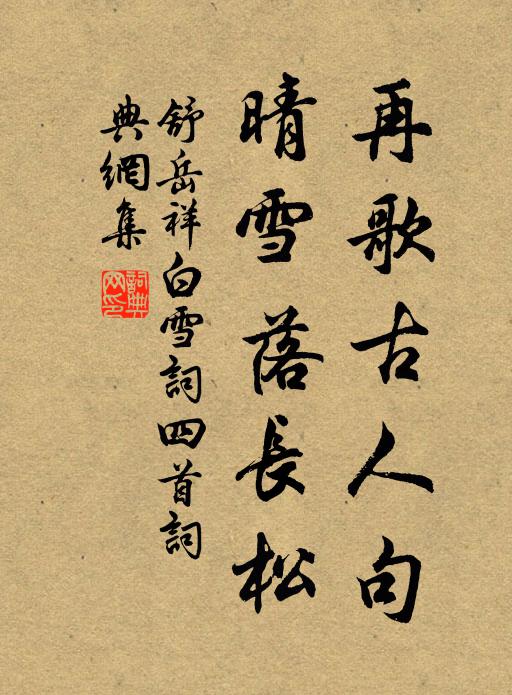 再歌古人句
晴雪落長松
舒岳祥白雪詞四首詞
典網集
詞典网印